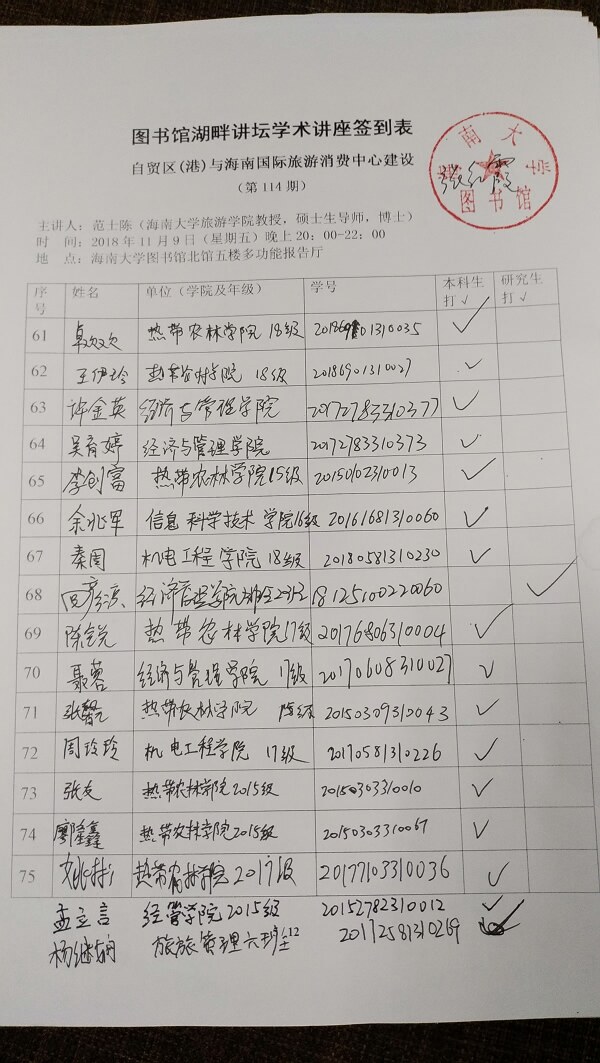 图书馆湖畔讲坛学术讲座签到表
自贸区(港)与海南国际旅游消费中心建设
(第114期)
海南大学
图书馆
张红霞
主讲人：范士陈（海南大学旅游学院教授，硕士生导师，博士）
时 间：2018年11月9日（星期五）晚上20：00-22：00
地 点：海南大学图书馆北馆五楼多功能报告厅
序号 姓名 单位（学院及年级） 学号 本科生打√ 研究生打√
61 卓欢欢 热带农林学院 18级 √
62 王伊玲 热带农林学院 18级 20186901310027 √
63 许金英 经济与管理学院 20172783310377 √
64 吴育婷 经济与管理学院 20172783310373 √
65 李创富 热带农林学院15级 20150102310013 √
66 余兆军 信息科学技术学院16级 20161681310060 √
67 秦周 机电工程学院 18级 20180581310230 √
68 18125100220060 √
69 陈锐 热带农林学院17级 20176806310004 √
70 聂蓉 经济与管理学院 17级 20170608310027 √
71 热带农林学院 15级 20150309310043 √
72 周玲玲 机电工程学院 17级 20170581310226 √
73 张友 热带农林学院2015级 20150303310010 √
74 廖鑫鑫 热带农林学院2015级 20150303310067 √
75 姚彬 热带农林学院2017级 20177103310036 √
孟立言 经管学院2015级 20152782310012 √
杨继娴 旅游管理六班 20172581310269 √